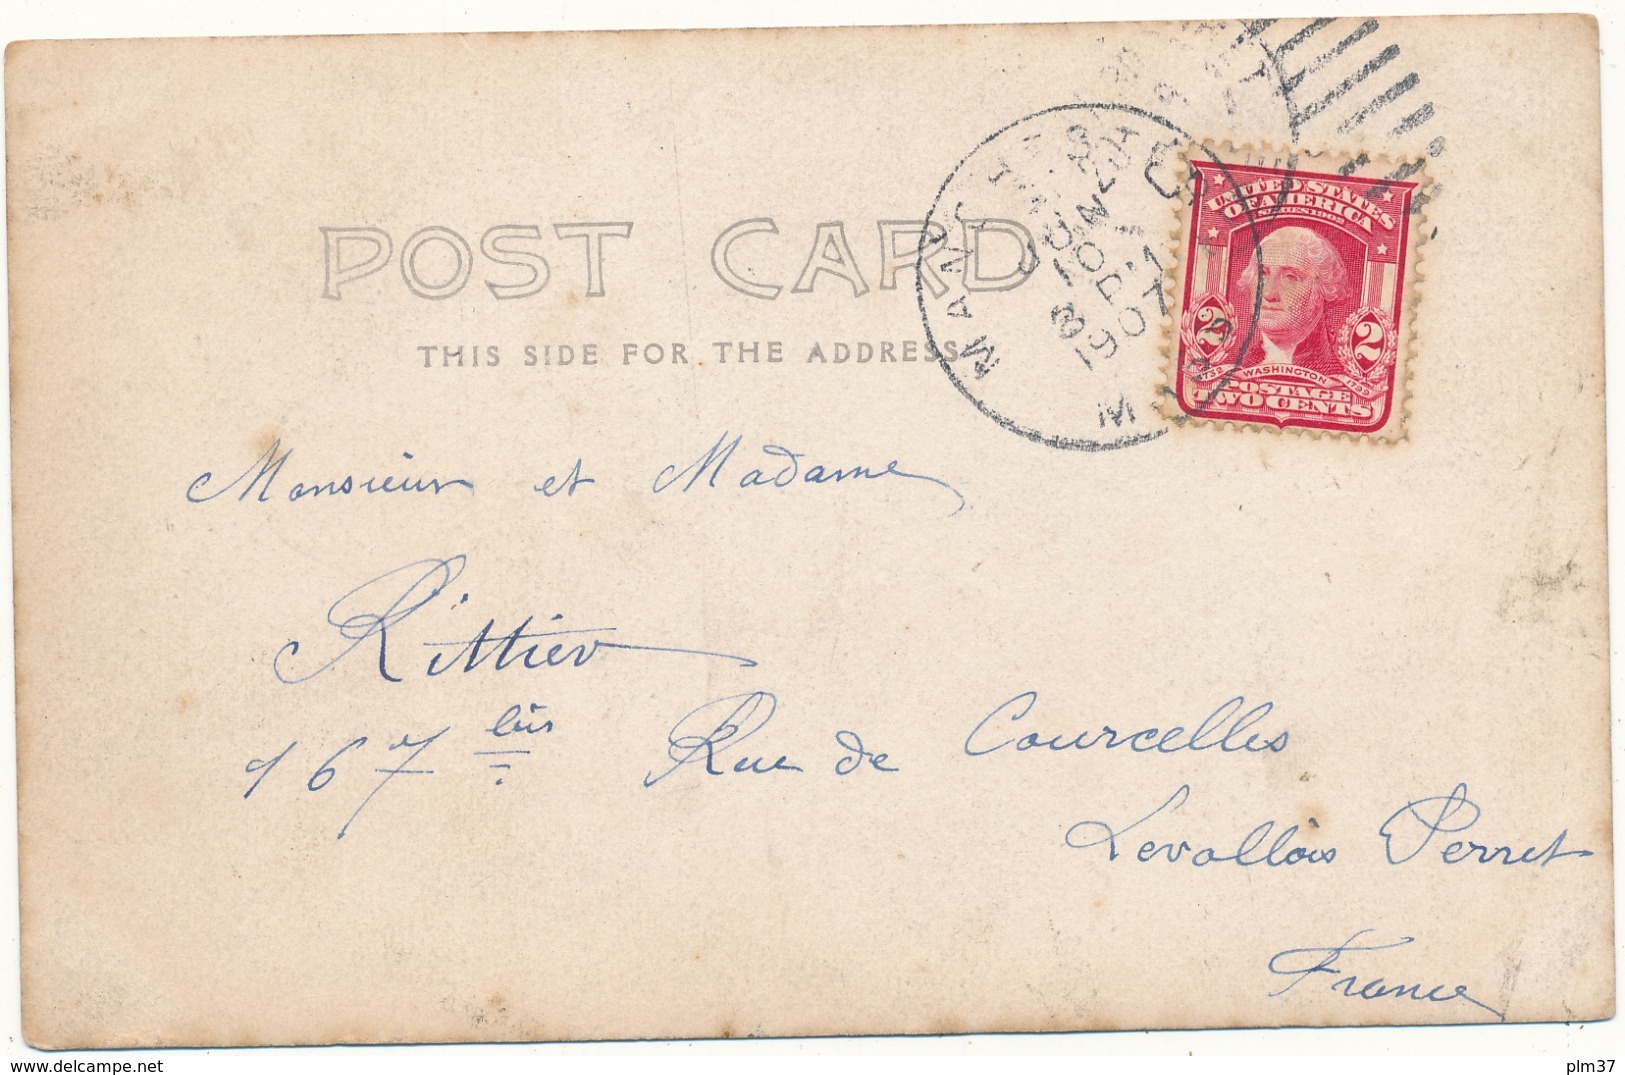 POST CARD
THIS SIDE FOR THE ADDRESS
MANCHESTER
JUN 20
8 30 PM
1907
MASS
UNITED STATES
OF AMERICA
SERIES 1902
2 2
1732 WASHINGTON 1799
POSTAGE
TWO CENTS
Monsieur et Madame
Rittier
167 bis Rue de Courcelles
Levallois Perret
France
plm37